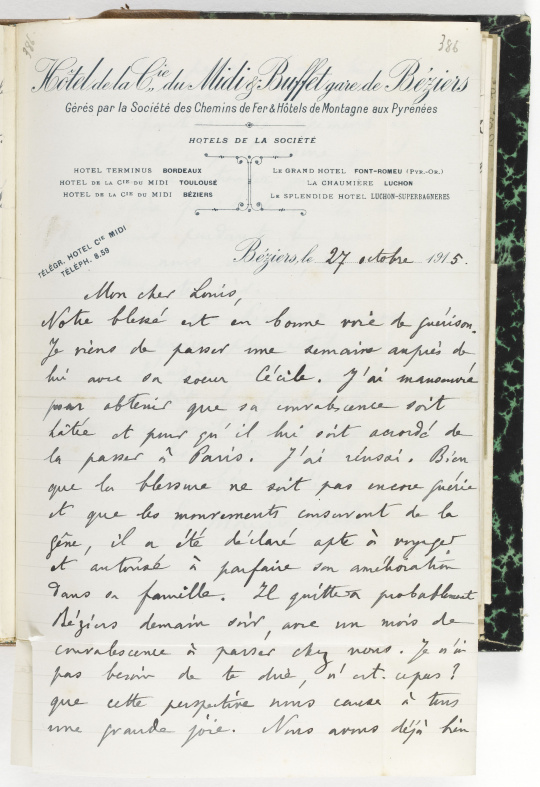 386
386
Hôtel de la Cie du Midi & Buffet gare de Béziers
Gérés par la Société des Chemins de Fer & Hôtels de Montagne aux Pyrénées
HOTELS DE LA SOCIÉTÉ
HOTEL TERMINUS BORDEAUX
HOTEL DE LA CIE DU MIDI TOULOUSE
HOTEL DE LA CIE DU MIDI BÉZIERS
LE GRAND HOTEL FONT-ROMEU (PYR.-OR.)
LA CHAUMIÈRE LUCHON
LE SPLENDIDE HOTEL LUCHON-SUPERBAGNERES
TÉLÉGR. HOTEL CIE MIDI
TÉLÉPH. 8.59
Béziers, le 27 octobre 1915.
Mon cher Louis,
Notre blessé est en bonne voie de guérison.
Je viens de passer une semaine auprès de
lui avec sa soeur Cécile. J'ai manoeuvré
pour obtenir que sa convalescence soit
hâtée et pour qu'il lui soit accordé de
la passer à Paris. J'ai réussi. Bien
que la blessure ne soit pas encore guérie
et que les mouvements conservent de la
gêne, il a été déclaré apte à voyager
et autorisé à parfaire son amélioration
dans sa famille. Il quittera probablement
Béziers demain soir, avec un mois de
convalescence à passer chez nous. Je n'ai
pas besoin de te dire, n'est-ce pas?
que cette perspective nous cause à tous
une grande joie. Nous avons déjà bien